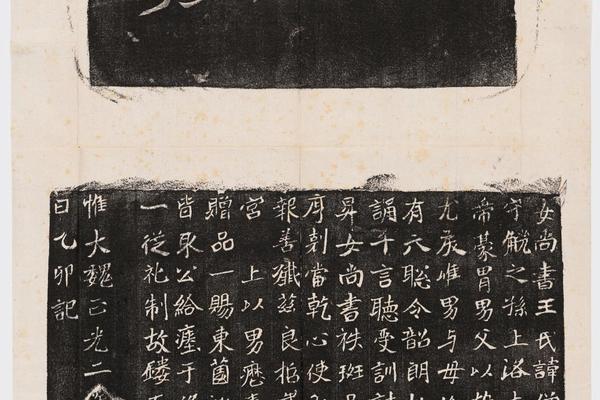 女尚書王氏諱僧
守觥之孫上洛太
帝蒙冑男父以
尤戾唯男与母
有六聡令韶朗
誦千言聽受訓
昇女尚書袟班品
序剋當乾心使
報善殲茲良
宮 上以男歷奉
贈品一賜東薗
皆取公給瘞于終
一從礼制故鏤
惟大魏正光二
日乙卯記